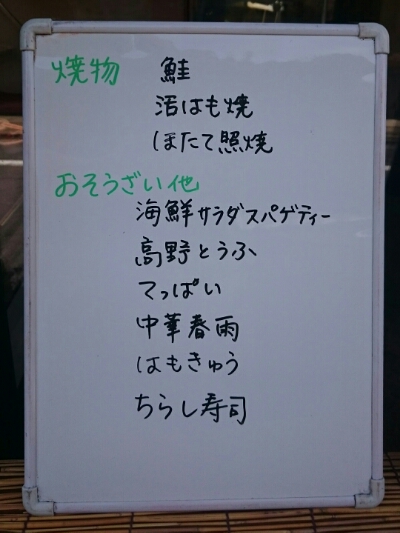 焼物 鮭
活はも焼
ほたて照焼
おそうざい他
海鮮サラダスパゲティー
高野とうふ
てっぱい
中華春雨
はもきゅう
ちらし寿司